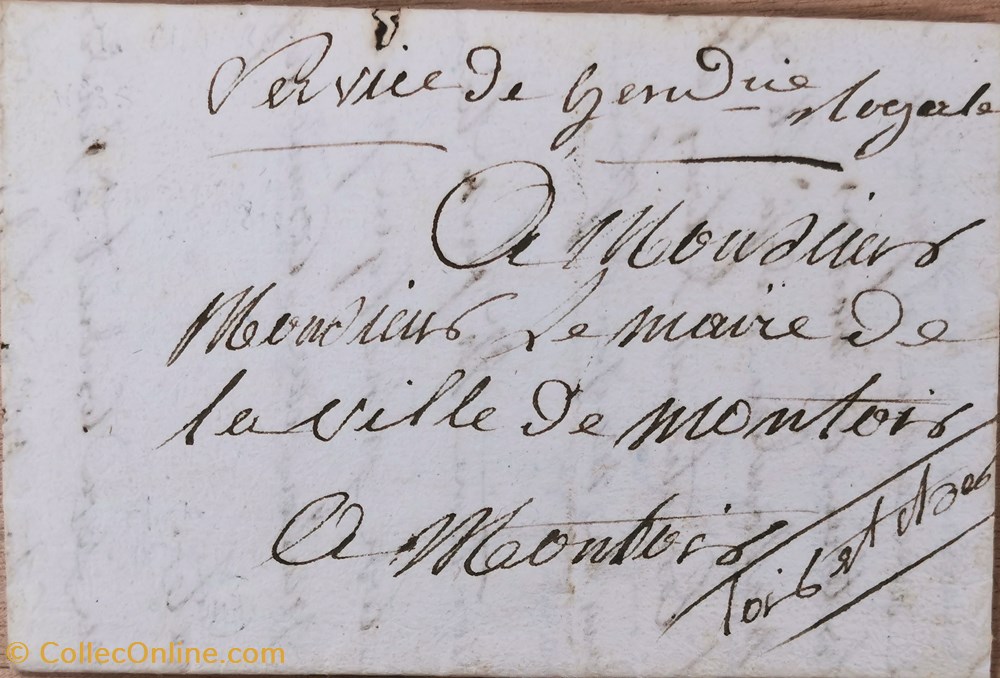 Service de gendrie
Royale
A Monsieur
Monsieur Le maire de
la ville de montoir
A Montoir
Loir
© CollecOnline.com